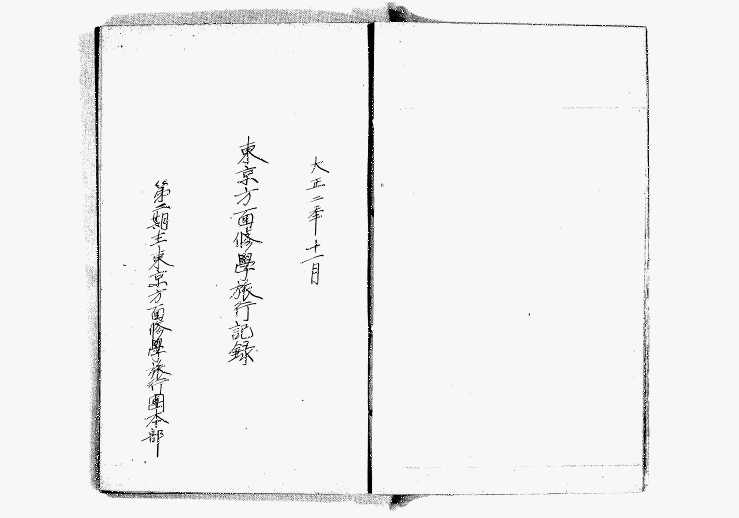 大正二年十一月
東京方面修學旅行記録
第二期生東京方面修學旅行團本部